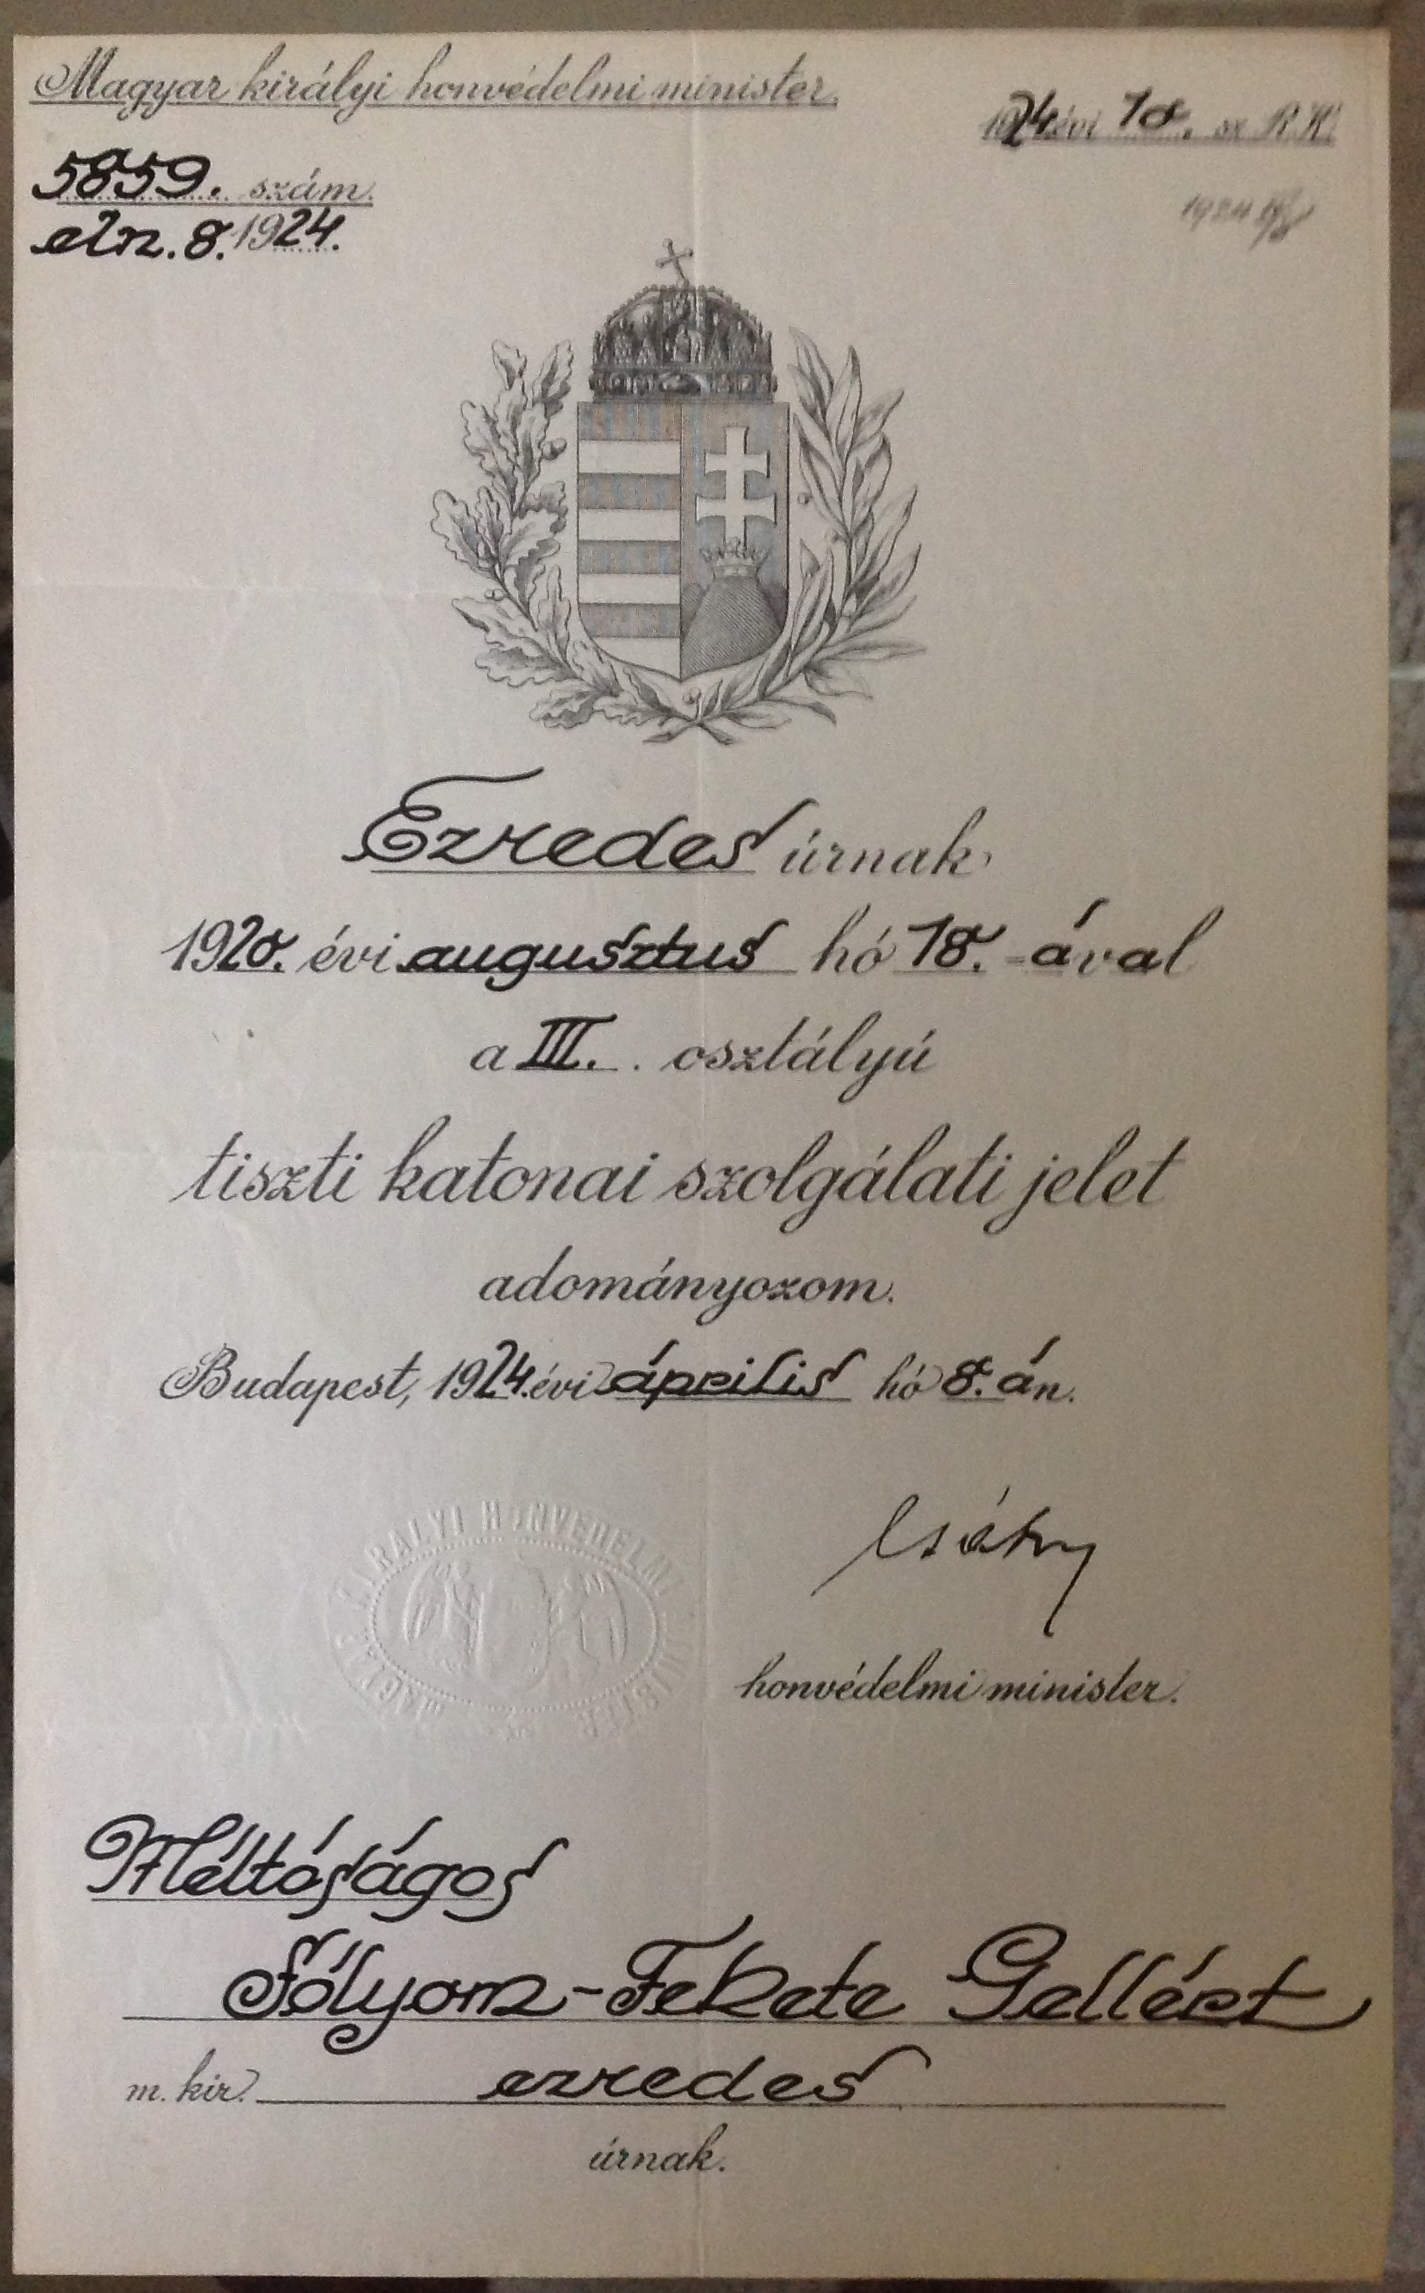 Magyar királyi honvédelmi minister.
1924 évi 18. sz R.K.
5859. szám.
eln. 8. 1924.
Ezredes úrnak
1920. évi augusztus hó 18.-ával
a III. osztályú
tiszti katonai szolgálati jelet
adományozom.
Budapest, 1924. évi április hó 8.án.
MAGYAR KIRÁLYI HONVÉDELMI MINISTER
Csáky
honvédelmi minister.
Méltóságos
Sólyom-Fekete Gellért
m. kir. ezredes
úrnak.